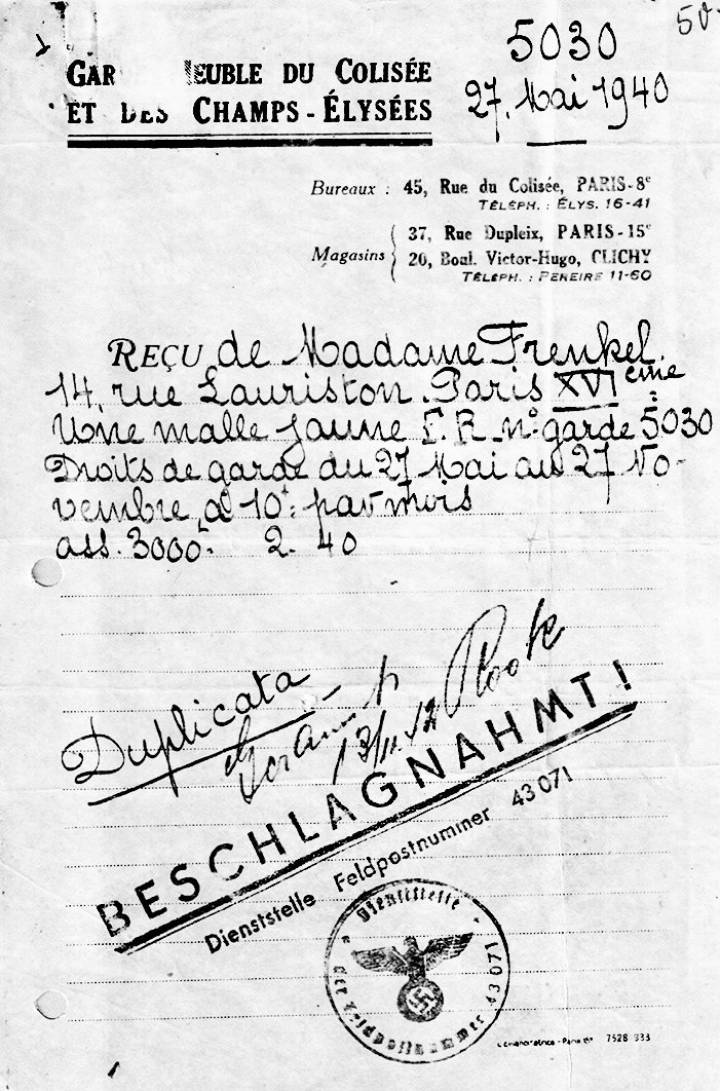 50
5030
27. Mai 1940
GAR EUBLE DU COLISÉE
ET DES CHAMPS-ÉLYSÉES
Bureaux : 45, Rue du Colisée, PARIS-8e
TÉLÉPH. : ÉLYS. 16-41
37, Rue Dupleix, PARIS-15e
Magasins
20, Boul. Victor-Hugo, CLICHY
TÉLÉPH. : PEREIRE 11-60
REÇU de Madame Frenkel.
14, rue Lauriston. Paris XVIeme
Une malle jaune F.R. n° garde 5030
Droits de garde du 27 Mai au 27 No-
vembre, à 10f. par mois
ass. 3000f. 2.40
Duplicata
BESCHLAGNAHMT!
Dienststelle Feldpostnummer 43071
Dienststelle
der Feldpostnummer 43071
7528 933